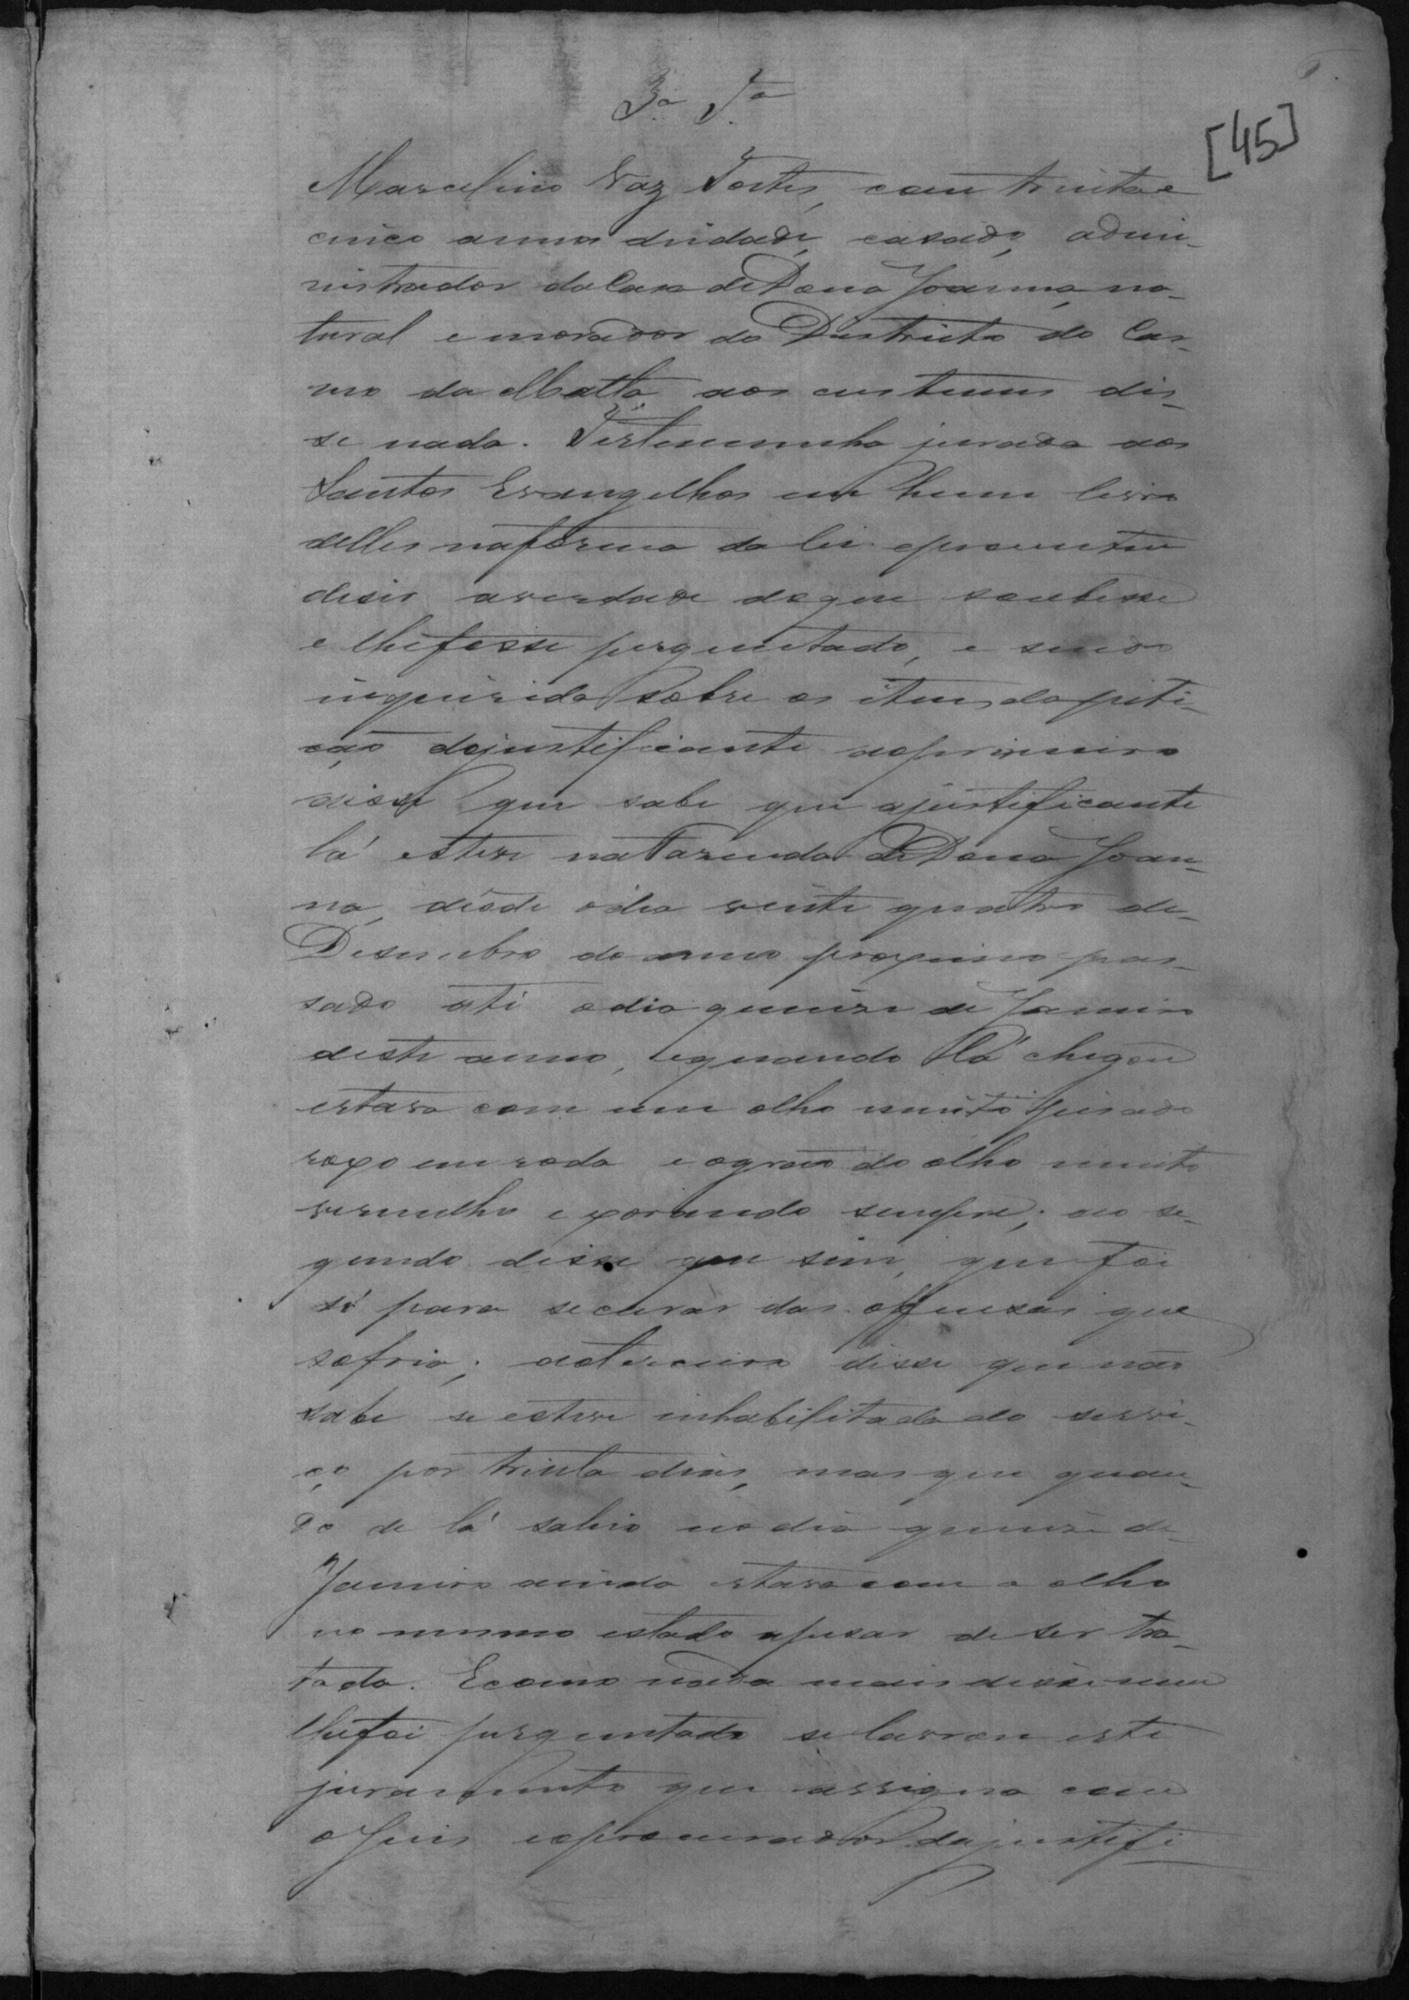 3ª Tª
[45]
Marcelino Vaz Tostes, com trinta e
cinco annos didade, casado, admi-
nistrador da Casa de Dona Joanna, na-
tural e morador do Districto do Car-
mo da Matta aos custumes dis-
se nada. Testemunha jurada aos
Santos Evangelhos em hum livro
delles na forma da lei e prometeu
diser a verdade do que soubesse
e lhe fosse perguntado, e sendo
inquirido sobre os itens da peti-
ção da justificante ao primeiro
disse que sabe que a justificante
lá esteve na Fazenda de Dona Joan-
na, désde o dia vinte quatro de
Desembro do anno proximo pas-
sado até o dia quinze de Janeiro
deste anno, e quando lá chegou
estava com um olho muito pisado
roxo em roda e o grão do olho muito
vermelho e xorando sempre; ao se-
gundo disse que sim, que foi
só para se curar das offensas que
sofrio; ao terceiro disse que não
sabe se esteve inhabilitada do servi-
ço por trinta dias, mas que quan-
do de lá sahio no dia quinze de
Janeiro ainda estava com o olho
no mesmo estado apesar de ser tra-
tada. E como nada mais disse nem
lhe foi perguntado se lavrou este
juramento que assigna com
o Juis e o procurador da justifi-